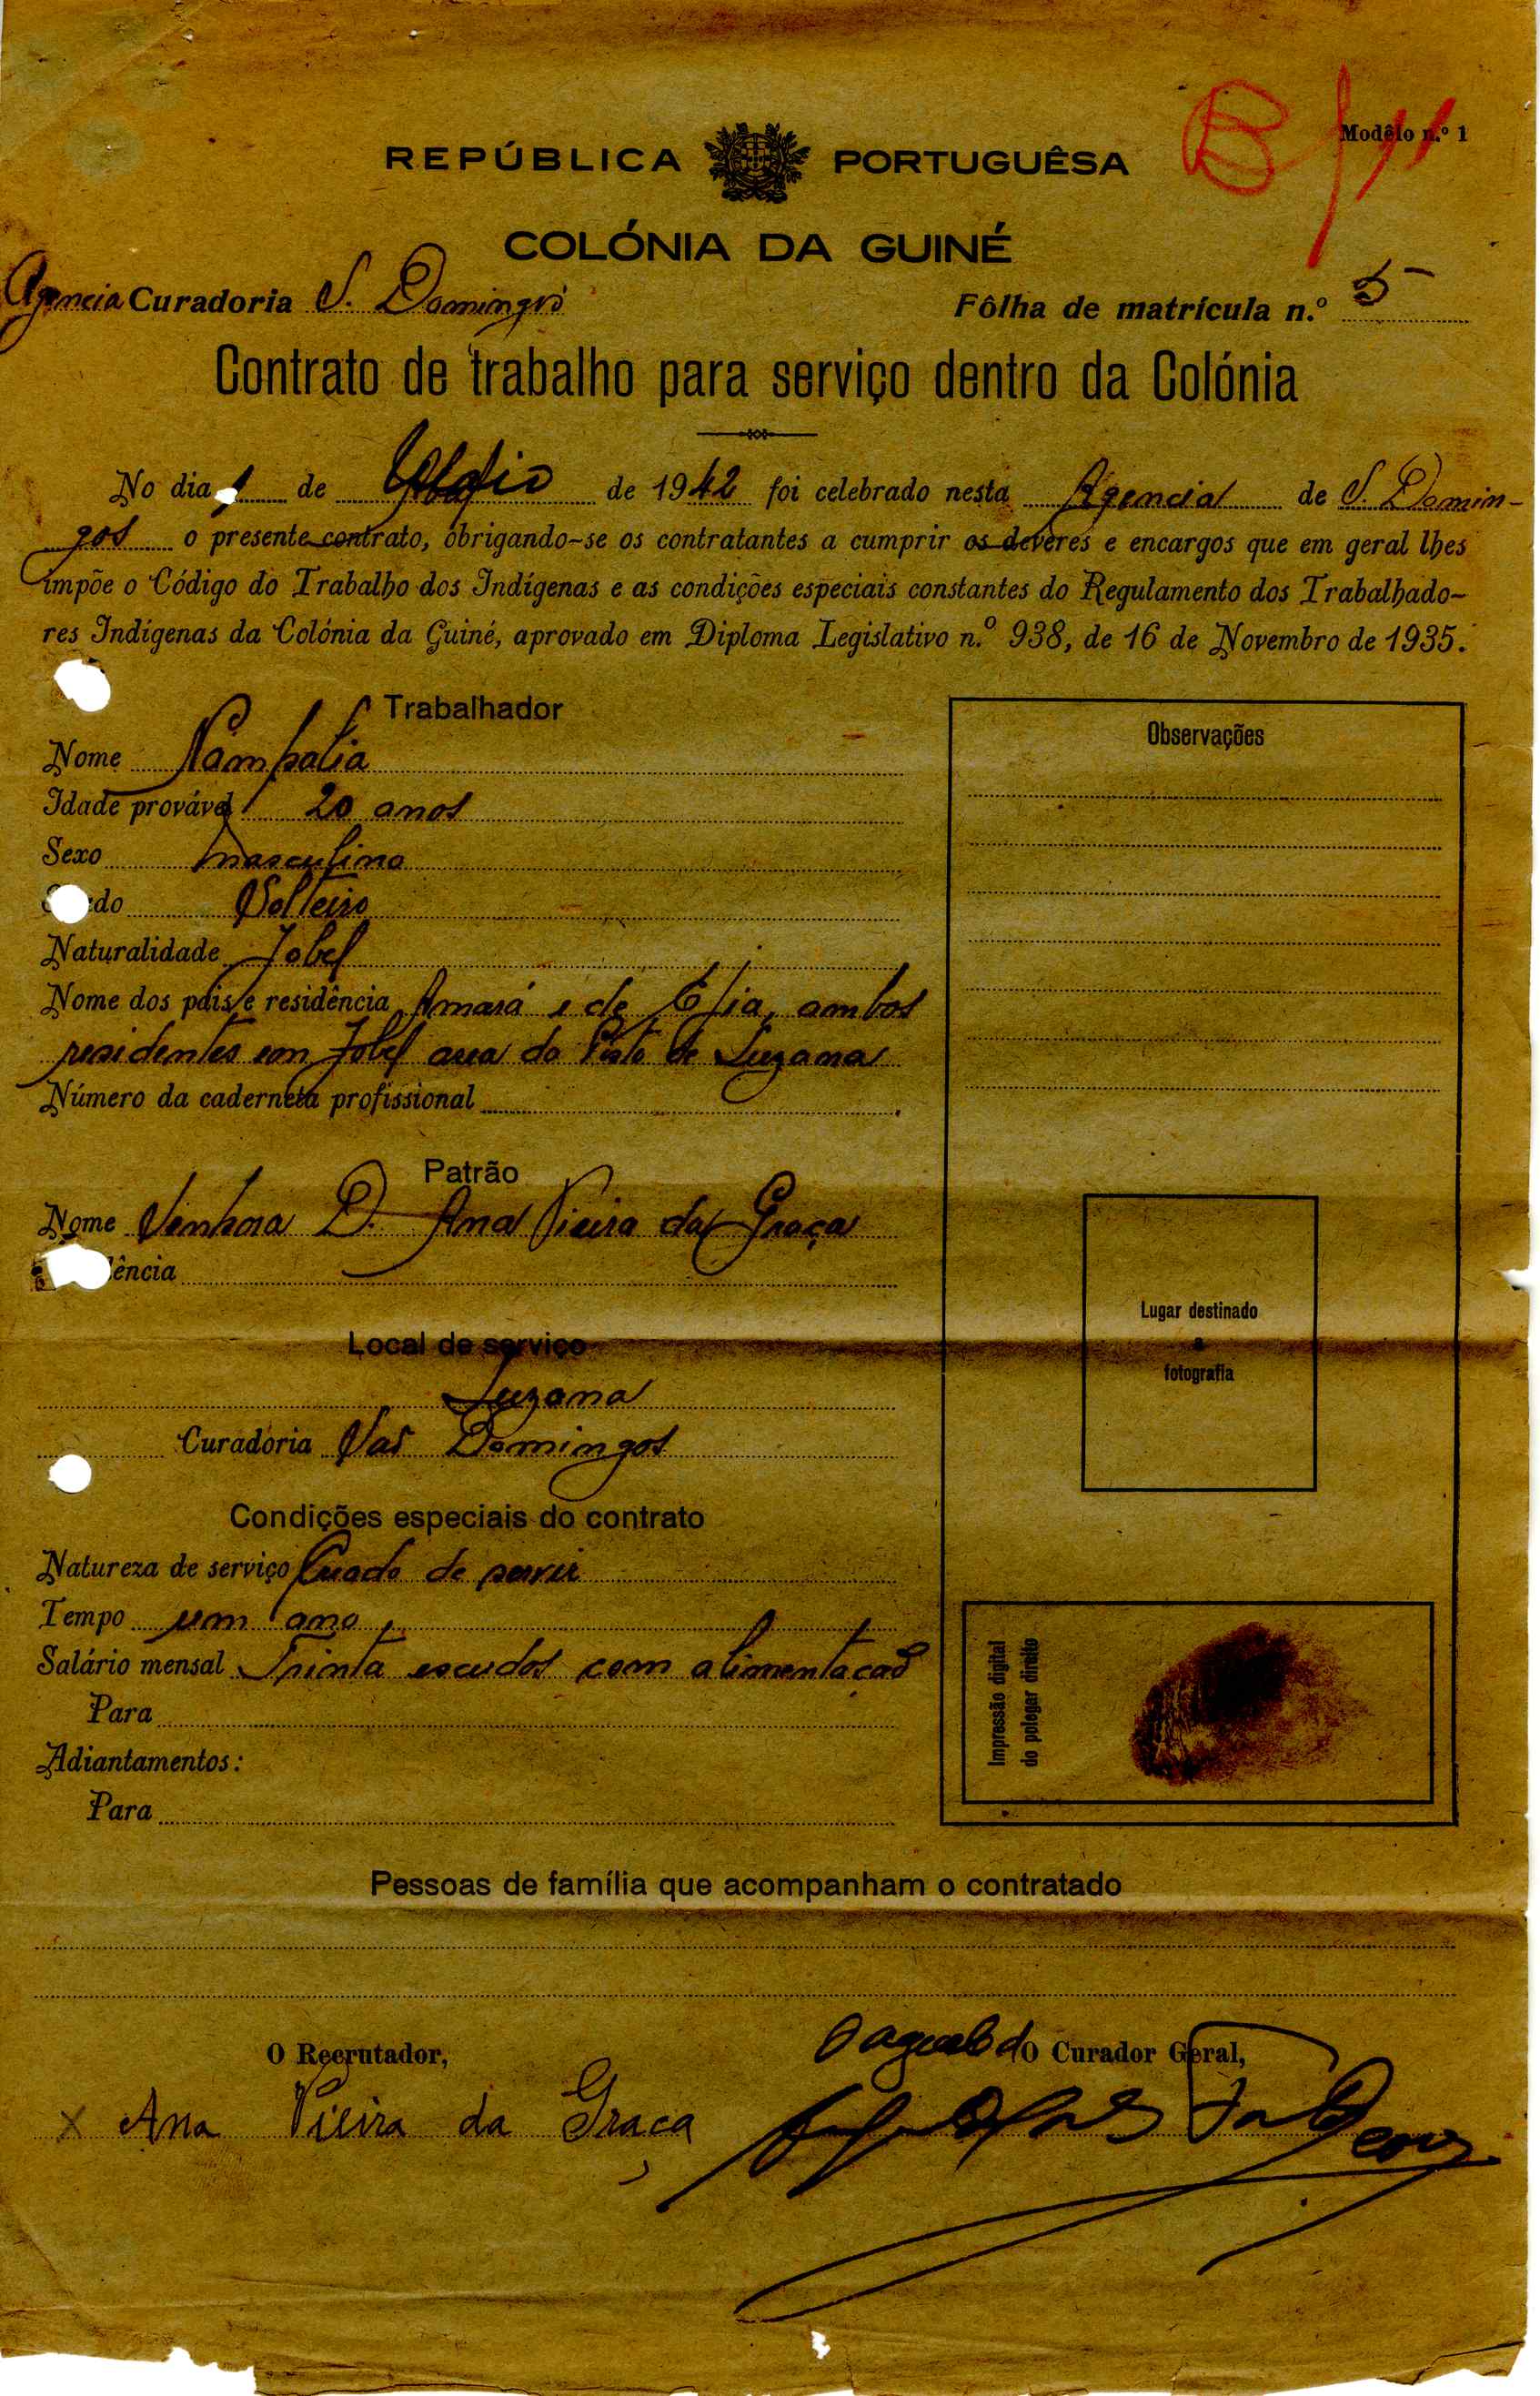 B
Modêlo n.º 1
REPÚBLICA PORTUGUÊSA
COLÓNIA DA GUINÉ
Agencia Curadoria S. Domingos
Fôlha de matrícula n.º 5
Contrato de trabalho para serviço dentro da Colónia
No dia 1 de Maio de 1942 foi celebrado nesta Agencia de S. Domin-
gos o presente contrato, obrigando-se os contratantes a cumprir os deveres e encargos que em geral lhes
impõe o Código do Trabalho dos Indígenas e as condições especiais constantes do Regulamento dos Trabalhado-
res Indígenas da Colónia da Guiné, aprovado em Diploma Legislativo n.º 938, de 16 de Novembro de 1935.
Trabalhador
Nome Nampalia
Idade provável 20 anos
Sexo masculino
do Solteiro
Naturalidade Jobel
Nome dos pais e residência Amará e de Elia, ambos
residentes em Jobel area do Posto de Suzana
Número da caderneta profissional
Patrão
Nome Senhora D. Ana Vieira da Graça
dência
Local de serviço
Suzana
Curadoria São Domingos
Condições especiais do contrato
Natureza de serviço Criado de servir
Tempo um ano
Salário mensal Trinta escudos com alimentacaõ
Para
Adiantamentos:
Para
Observações
Lugar destinado
a
fotografia
Impressão digital
do polegar direito
Pessoas de família que acompanham o contratado
O Recrutador,
O agente do O Curador Geral,
X Ana Vieira da Graça